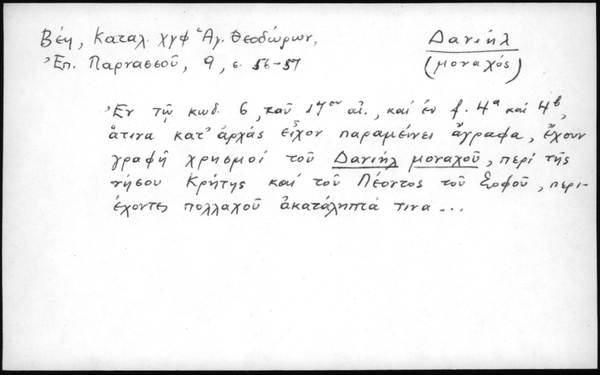 Βέη, Καταλ. χγφ Ἁγ. Θεοδώρων,
Δανιὴλ
Ἐπ. Παρνασσοῦ, 9, σ. 56-57
(μοναχός)
Ἐν τῷ κωδ. 6, τοῦ 17ου αἰ., καὶ ἐν f. 4a καὶ 4b,
ἅτινα κατ' ἀρχὰς εἶχον παραμείνει ἄγραφα, ἔχουν
γραφῆ χρησμοὶ τοῦ Δανιὴλ μοναχοῦ, περὶ τῆς
νήσου Κρήτης καὶ τοῦ Λέοντος τοῦ Σοφοῦ, περι-
έχοντες πολλαχοῦ ἀκατάληπτά τινα...